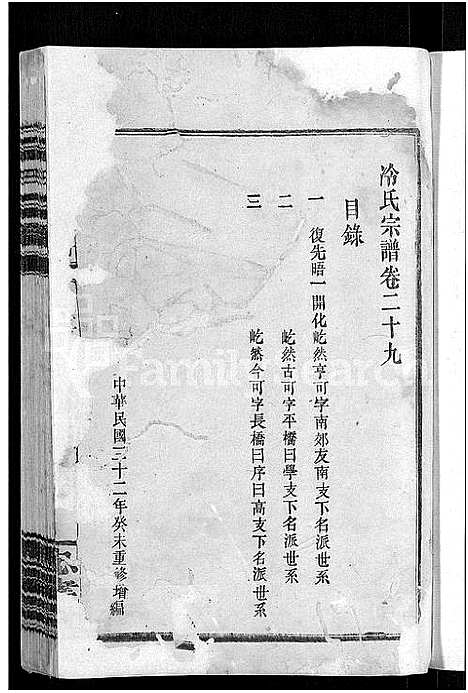 冷氏宗譜卷二十九
目錄
一 復先晤一開化屹然亨可字南郊友南支下名派世系
二 屹然古可字平橋曰學支下名派世系
三 屹然今可字長橋曰序曰高支下名派世系
中華民國三十二年癸未重修增編
FamilySearch